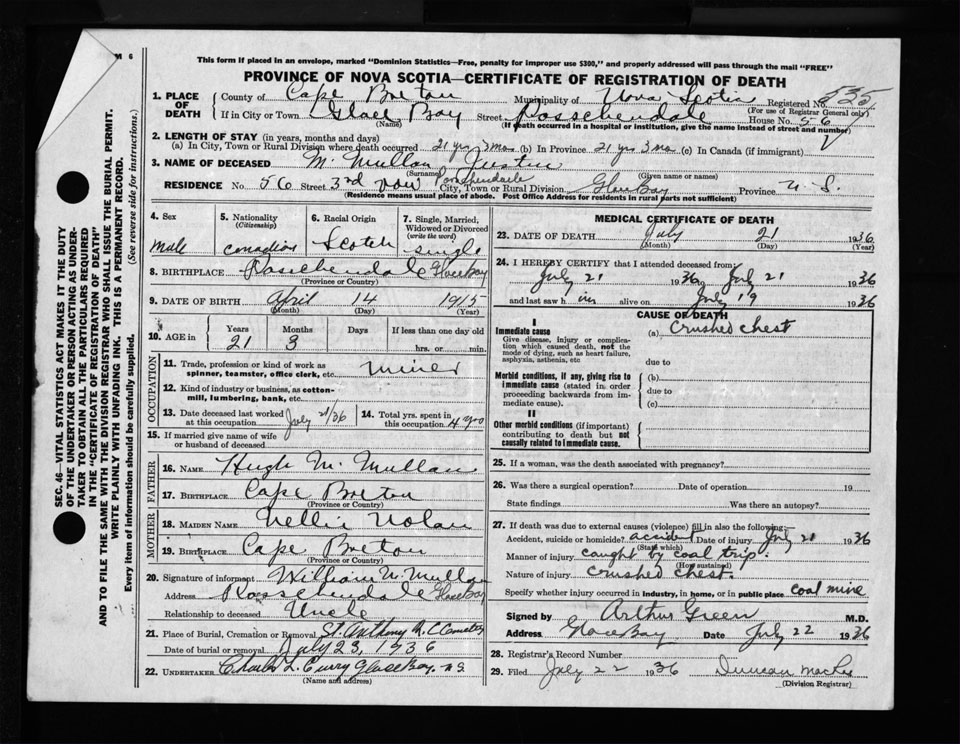 M 6
This form if placed in an envelope, marked "Dominion Statistics—Free, penalty for improper use $300," and properly addressed will pass through the mail "FREE"
PROVINCE OF NOVA SCOTIA—CERTIFICATE OF REGISTRATION OF DEATH
SEC. 46—VITAL STATISTICS ACT MAKES IT THE DUTY
OF THE UNDERTAKER OR PERSON ACTING AS UNDER-
TAKER TO OBTAIN ALL THE PARTICULARS REQUIRED
IN THE "CERTIFICATE OF REGISTRATION OF DEATH"
AND TO FILE THE SAME WITH THE DIVISION REGISTRAR WHO SHALL ISSUE THE BURIAL PERMIT.
WRITE PLAINLY WITH UNFADING INK. THIS IS A PERMANENT RECORD.
Every item of information should be carefully supplied. (See reverse side for instructions.)
1. PLACE OF DEATH County of Cape Breton Municipality of Nova Scotia Registered No. 535
(For use of Registrar General only)
If in City or Town Glace Bay Street Passchendale House No. 56
(Name) (If death occurred in a hospital or institution, give the name instead of street and number)
2. LENGTH OF STAY (in years, months and days)
(a) In City, Town or Rural Division where death occurred 21 yrs 3 mos (b) In Province 21 yrs 3 mos (c) In Canada (if immigrant)
3. NAME OF DECEASED M. Mullan Justin
(Surname) (Given name or names)
RESIDENCE No. 56 Street 3rd row Passchendaele City, Town or Rural Division Glace Bay Province N. S.
(Residence means usual place of abode. Post Office Address for residents in rural parts not sufficient)
4. Sex 5. Nationality (Citizenship) 6. Racial Origin 7. Single, Married, Widowed or Divorced (write the word)
male Canadian Scotch single
8. BIRTHPLACE Passchendale Glace Bay
(Province or Country)
9. DATE OF BIRTH April 14 1915
(Month) (Day) (Year)
10. AGE in Years Months Days If less than one day old
21 3 hrs. or min.
OCCUPATION
11. Trade, profession or kind of work as spinner, teamster, office clerk, etc. miner
12. Kind of industry or business, as cotton-mill, lumbering, bank, etc.
13. Date deceased last worked at this occupation July 21/36 14. Total yrs. spent in this occupation 4 yrs
15. If married give name of wife or husband of deceased
FATHER
16. NAME Hugh M. Mullan
17. BIRTHPLACE Cape Breton
(Province or Country)
MOTHER
18. MAIDEN NAME Nellie Nolan
19. BIRTHPLACE Cape Breton
(Province or Country)
20. Signature of informant William M. Mullan
Address Passchendale Glace Bay
Relationship to deceased Uncle
21. Place of Burial, Cremation or Removal St. Anthony R. C. Cemetery
Date of burial or removal July 23, 1936
22. UNDERTAKER Charles L. Curry Glace Bay, N.S.
(Name and address)
MEDICAL CERTIFICATE OF DEATH
23. DATE OF DEATH July 21 1936
(Month) (Day) (Year)
24. I HEREBY CERTIFY that I attended deceased from
July 21 1936 to July 21 1936
and last saw him alive on July 19 1936
CAUSE OF DEATH
I
Immediate cause (a) Crushed chest
Give disease, injury or complication which caused death, not the mode of dying, such as heart failure, asphyxia, asthenia, etc
due to
Morbid conditions, if any, giving rise to immediate cause (stated in order proceeding backwards from immediate cause). (b)
due to
(c)
II
Other morbid conditions (if important) contributing to death but not causally related to immediate cause.
25. If a woman, was the death associated with pregnancy?
26. Was there a surgical operation? Date of operation 19
State findings Was there an autopsy?
27. If death was due to external causes (violence) fill in also the following:
Accident, suicide or homicide? accident Date of injury July 21 1936
(State which)
Manner of injury caught by coal trip.
(How sustained)
Nature of injury crushed chest.
Specify whether injury occurred in industry, in home, or in public place coal mine
Signed by Arthur Green M.D.
Address Glace Bay Date July 22 1936
28. Registrar's Record Number
29. Filed July 22 1936 Duncan
(Division Registrar)